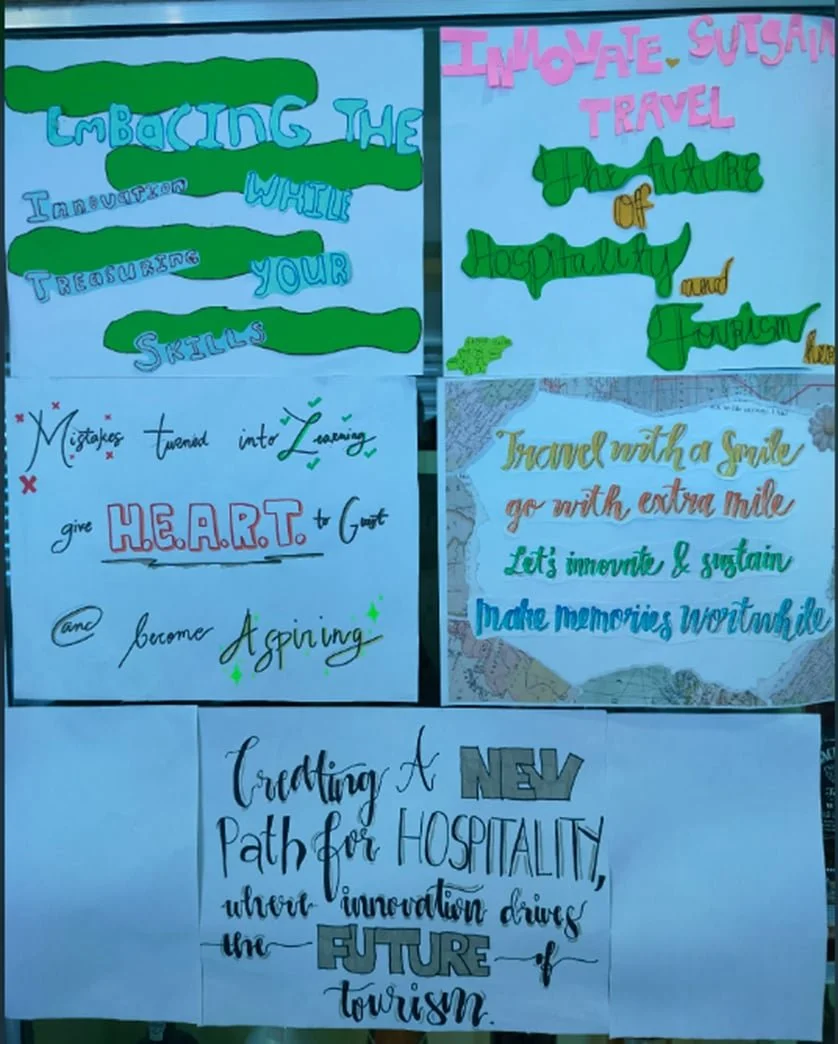 EMBACING THE
INNOVATION WHILE
TREASURING YOUR
SKILLS
INNOVATE. SUTSAIN
TRAVEL
The future
OF
Hospitality
and
Tourism
Mistakes turned into Learning
give H.E.A.R.T. to Guest
and become Aspiring
Travel with a Smile
go with extra mile
Let's innovate & sustain
Make memories wortwhile
Creating A NEW
Path for HOSPITALITY,
where innovation drives
the FUTURE of
tourism.